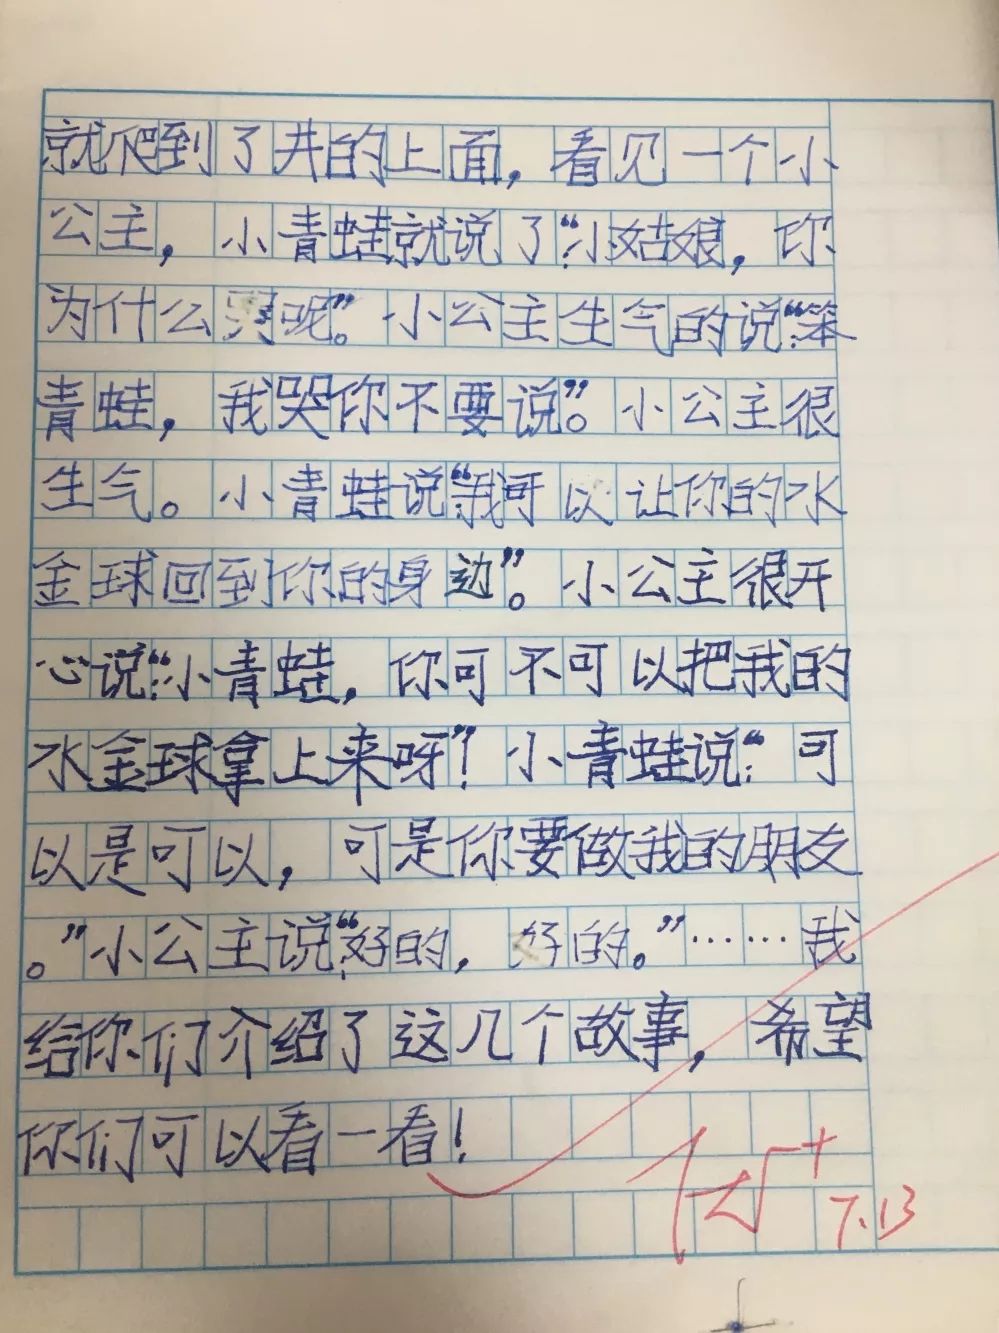 就爬到了井的上面，看见一个小
公主，小青蛙就说了：“小姑娘，你
为什么哭呢”。小公主生气的说：“笨
青蛙，我哭你不要说”。小公主很
生气。小青蛙说：“我可以让你的水
金球回到你的身边”。小公主很开
心说：“小青蛙，你可不可以把我的
水金球拿上来呀”！小青蛙说：“可
以是可以，可是你要做我的朋友
。”小公主说：“好的，好的。”……我
给你们介绍了这几个故事，希望
你们可以看一看！
优+
7.13